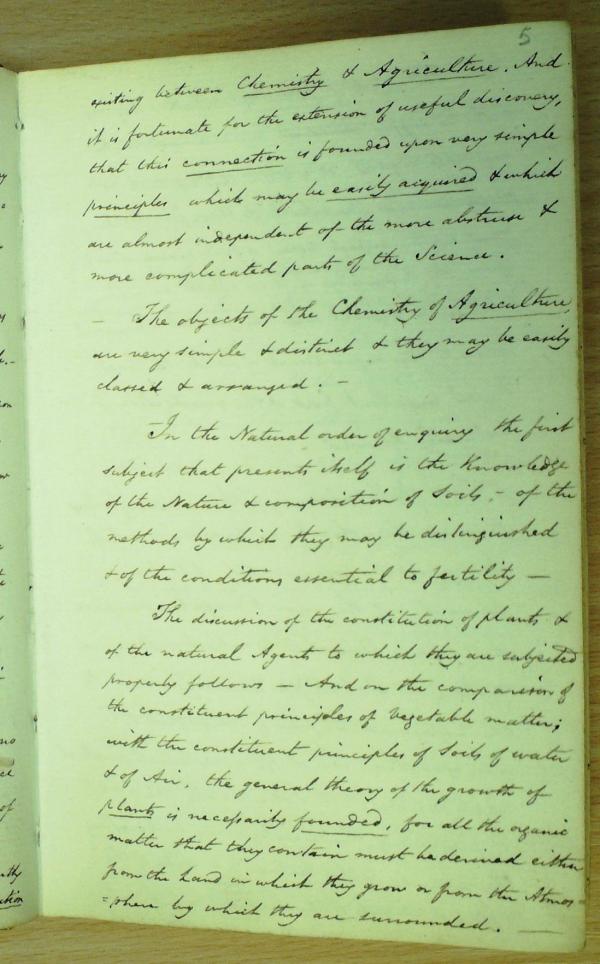 5
existing between Chemistry & Agriculture. And
it is fortunate for the extension of useful discovery,
that this connection is founded upon very simple
principles which may be easily acquired & which
are almost independent of the more abstruse &
more complicated parts of the Science.
— The objects of the Chemistry of Agriculture,
are very simple & distinct & they may be easily
classed & arranged. —
In the Natural order of enquiry the first
subject that presents itself is the Knowledge
of the Nature & composition of Soils, — of the
methods by which they may be distinguished
& of the conditions essential to fertility —
The discussion of the constitution of plants &
of the natural Agents to which they are subjected
properly follows — And on the comparison of
the constituent principles of vegetable matter;
with the constituent principles of Soils of water
& of Air, the general theory of the growth of
plants is necessarily founded, for all the organic
matter that they contain must be derived either
from the land in which they grow or from the Atmos=
=phere by which they are surrounded. —